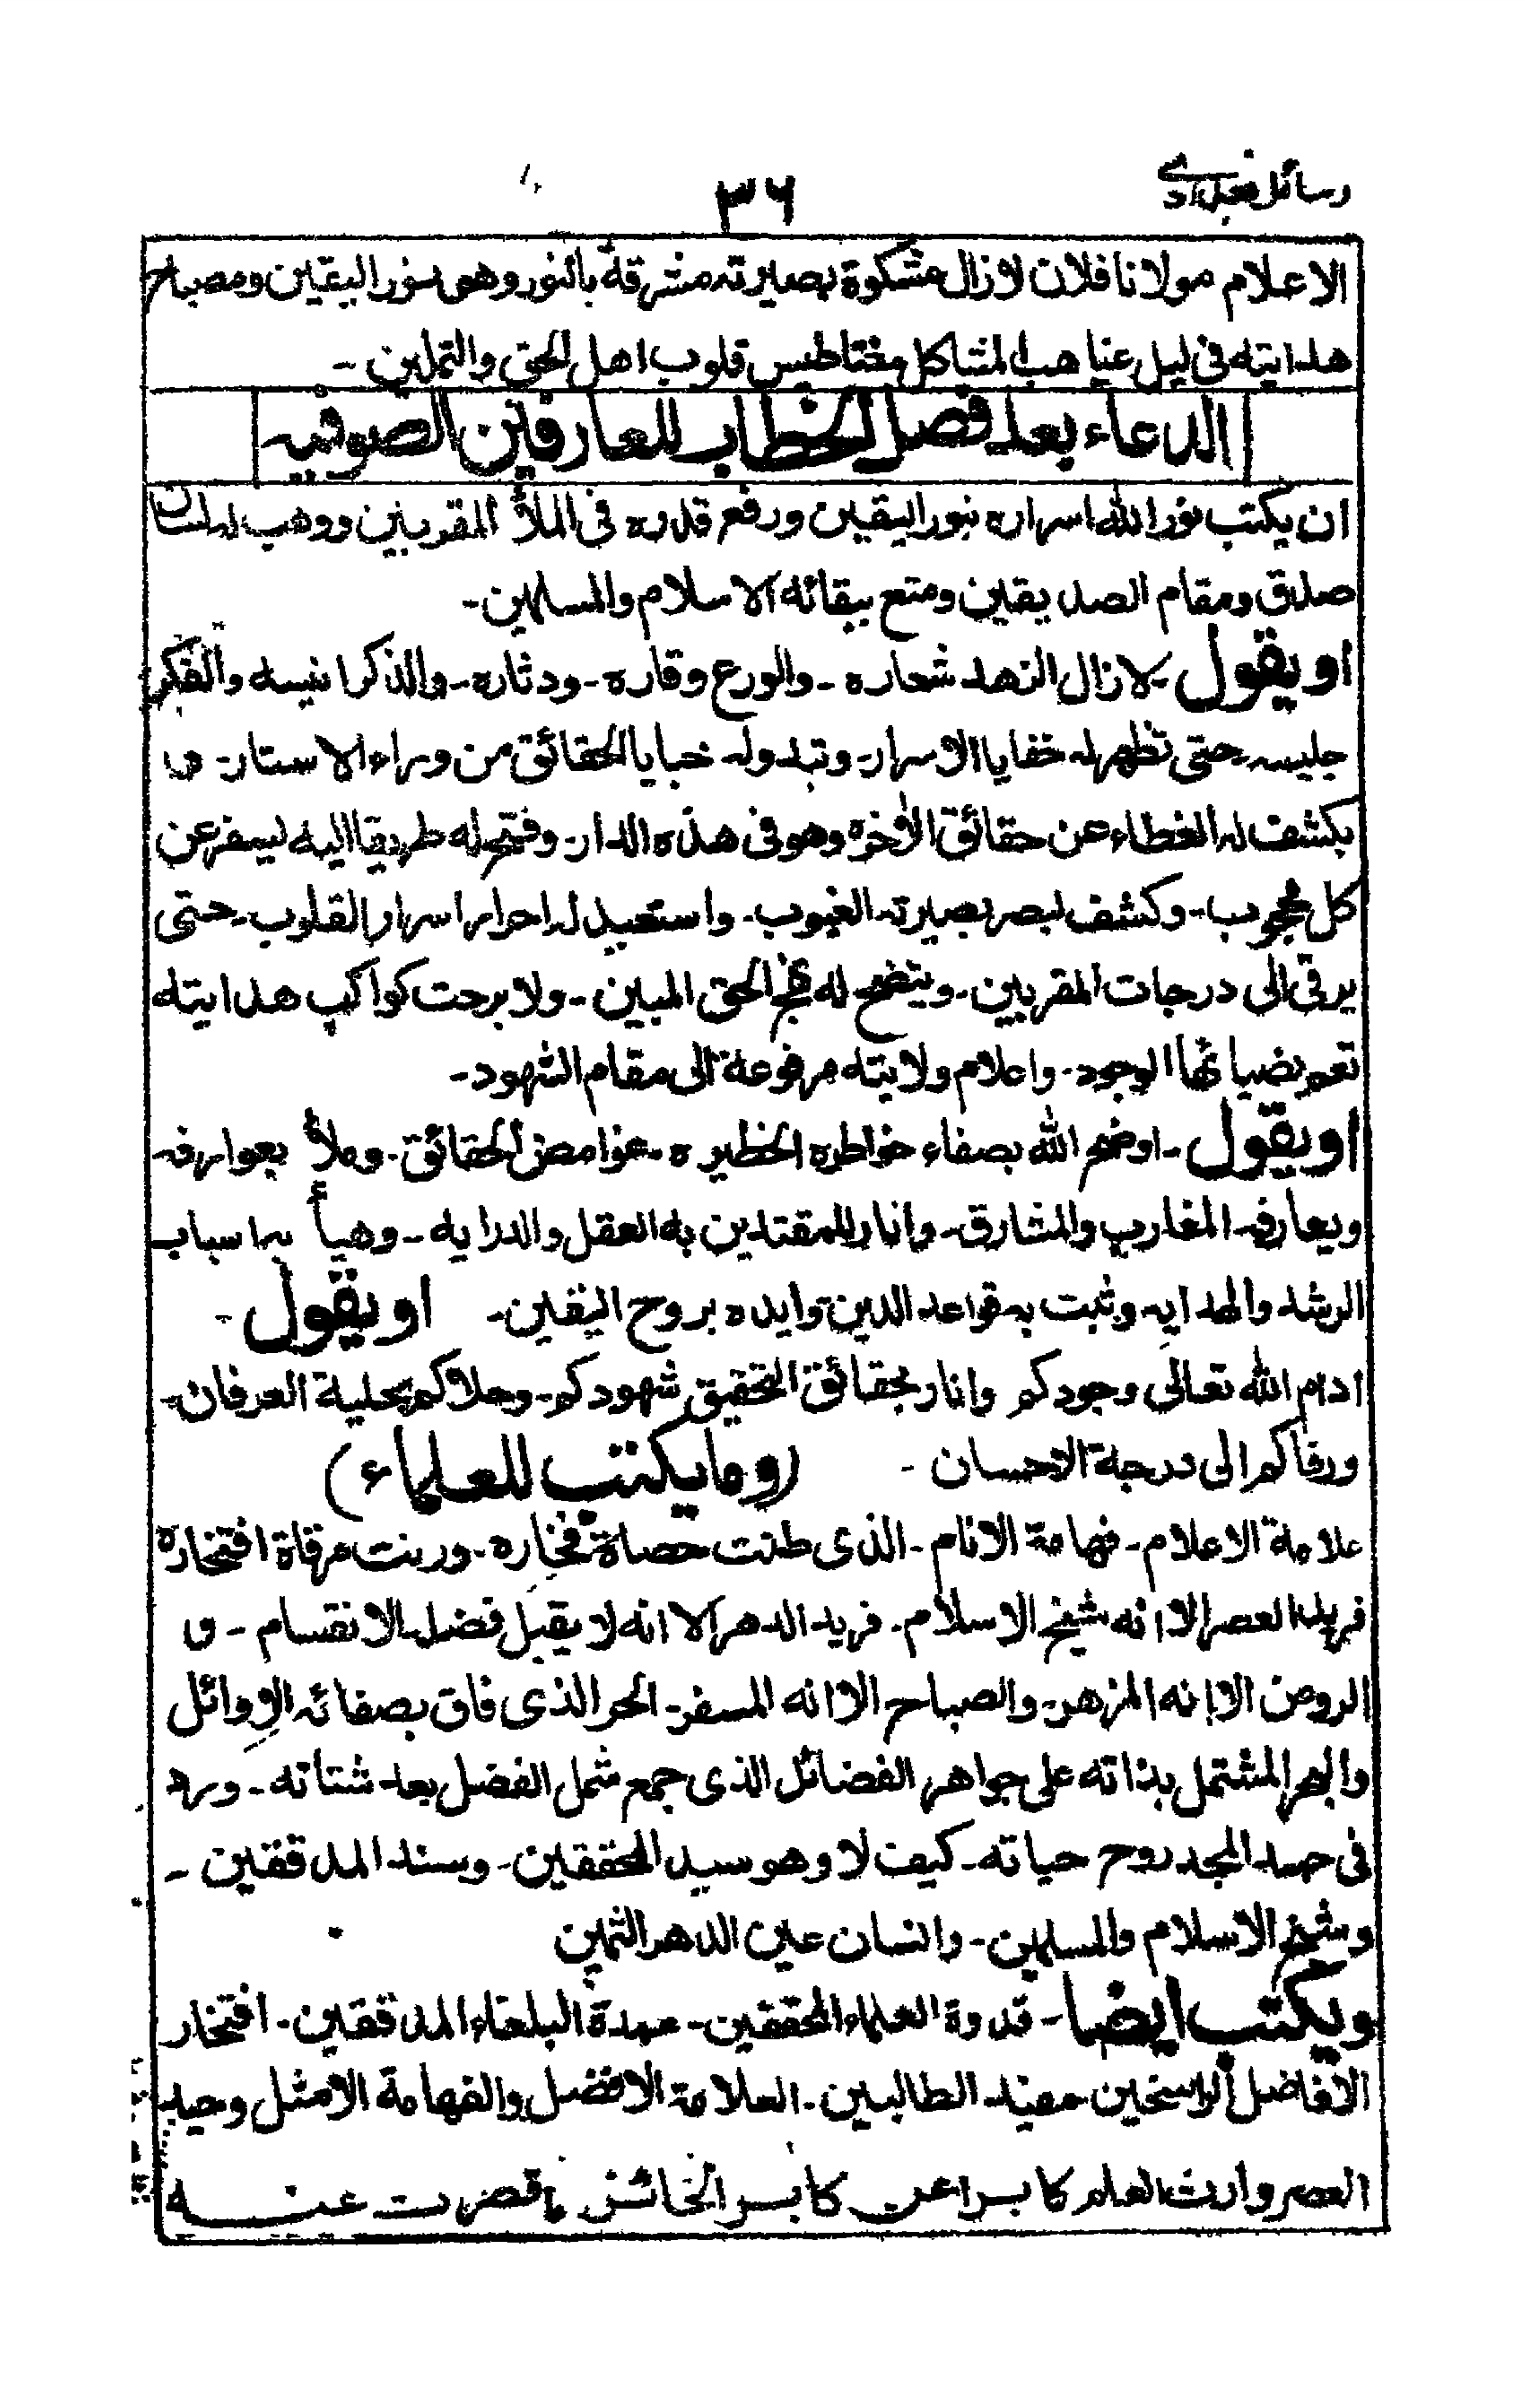 رسائل
٣٦
الاعلام مولانا فلان لا زال مشكوة بصيرته مشرقة بالنور وهى بنور اليقين ومصباح
هدايته فى ليل غياهب المشاكل مغناطيس قلوب اهل الحق والتمكين -
الدعاء بعد فصل الخطاب للعارفين الصوفيه
ان يكتب نور الله اسراره بنور اليقين ورفع قدره فى الملأ المقربين ووهب له لسان
صدق ومقام الصديقين ومتع ببقائه الاسلام والمسلمين -
او يقول لا زال الزهد شعاره - والورع وقاره - ودثاره - والذكر انيسه والفكر
جليسه - حتى تظهر له خفايا الاسرار - وتبدوله خبايا الحقائق من وراء الاستار - و
يكشف له الغطاء عن حقائق الأخره وهو فى هذه الدار - وفتح له طريقا اليه ليسفر عن
كل محجوب - وكشف لبصر بصيرته الغيوب - واستعبد له احرار اسرار القلوب - حتى
يرقى الى درجات المقربين - ويتضح له نهج الحق المبين - ولا برحت كواكب هدايته
تعم بضيائها الوجود - واعلام ولايته مرفوعة الى مقام الشهود -
او يقول - اوضح الله بصفاء خواطره الخطيره - غوامض الحقائق - وملأ بعوارفه
وبعارفه المغارب والمشارق - وانار للمقتدين به العقل والدرايه - وهيأ به اسباب
الرشد والهدايه وثبت به قواعد الدين وايده بروح اليقين - او يقول -
ادام الله تعالى وجودكم وانار بحقائق التحقيق شهودكم - وحلاكم بحلية العرفان -
ورقاكم الى درجة الاحسان - (وما يكتب للعلماء)
علامة الاعلام - فهامة الانام - الذى طنت حصاة فخاره - ورنت مرقاة افتخاره
فريد العصر الا انه شيخ الاسلام - فريد الدهر الا انه لا يقبل فضل الانقسام - و
الروض الا انه المزهر - والصباح الا انه المسفر - الحر الذى فاق بصفائه الاوائل
والبحر المشتمل بذاته على جواهر الفضائل الذى جمع شمل الفضل بعد شتاته - ورد
فى جسد المجد روح حياته - كيف لا وهو سيد المحققين - وسند المدققين -
وشيخ الاسلام والمسلمين - وانسان عين الدهر الثمين
ويكتب ايضا - قدوة العلماء المحققين - عمدة البلغاء المدققين - افتخار
الافاضل الراسخين مفيد الطالبين - العلامة الافضل والفهامة الامثل وحيد
العصر وارث العلم كابرا عن كابر الخائض ما قصرت عنه